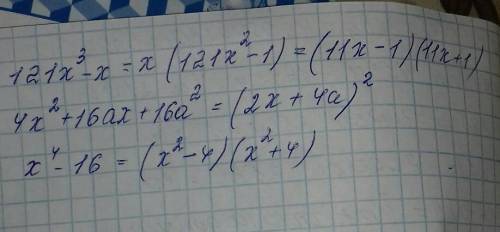 121x³-x = x(121x²-1) = (11x-1)(11x+1)
4x²+16ax+16a² = (2x+4a)²
x⁴-16 = (x²-4)(x²+4)